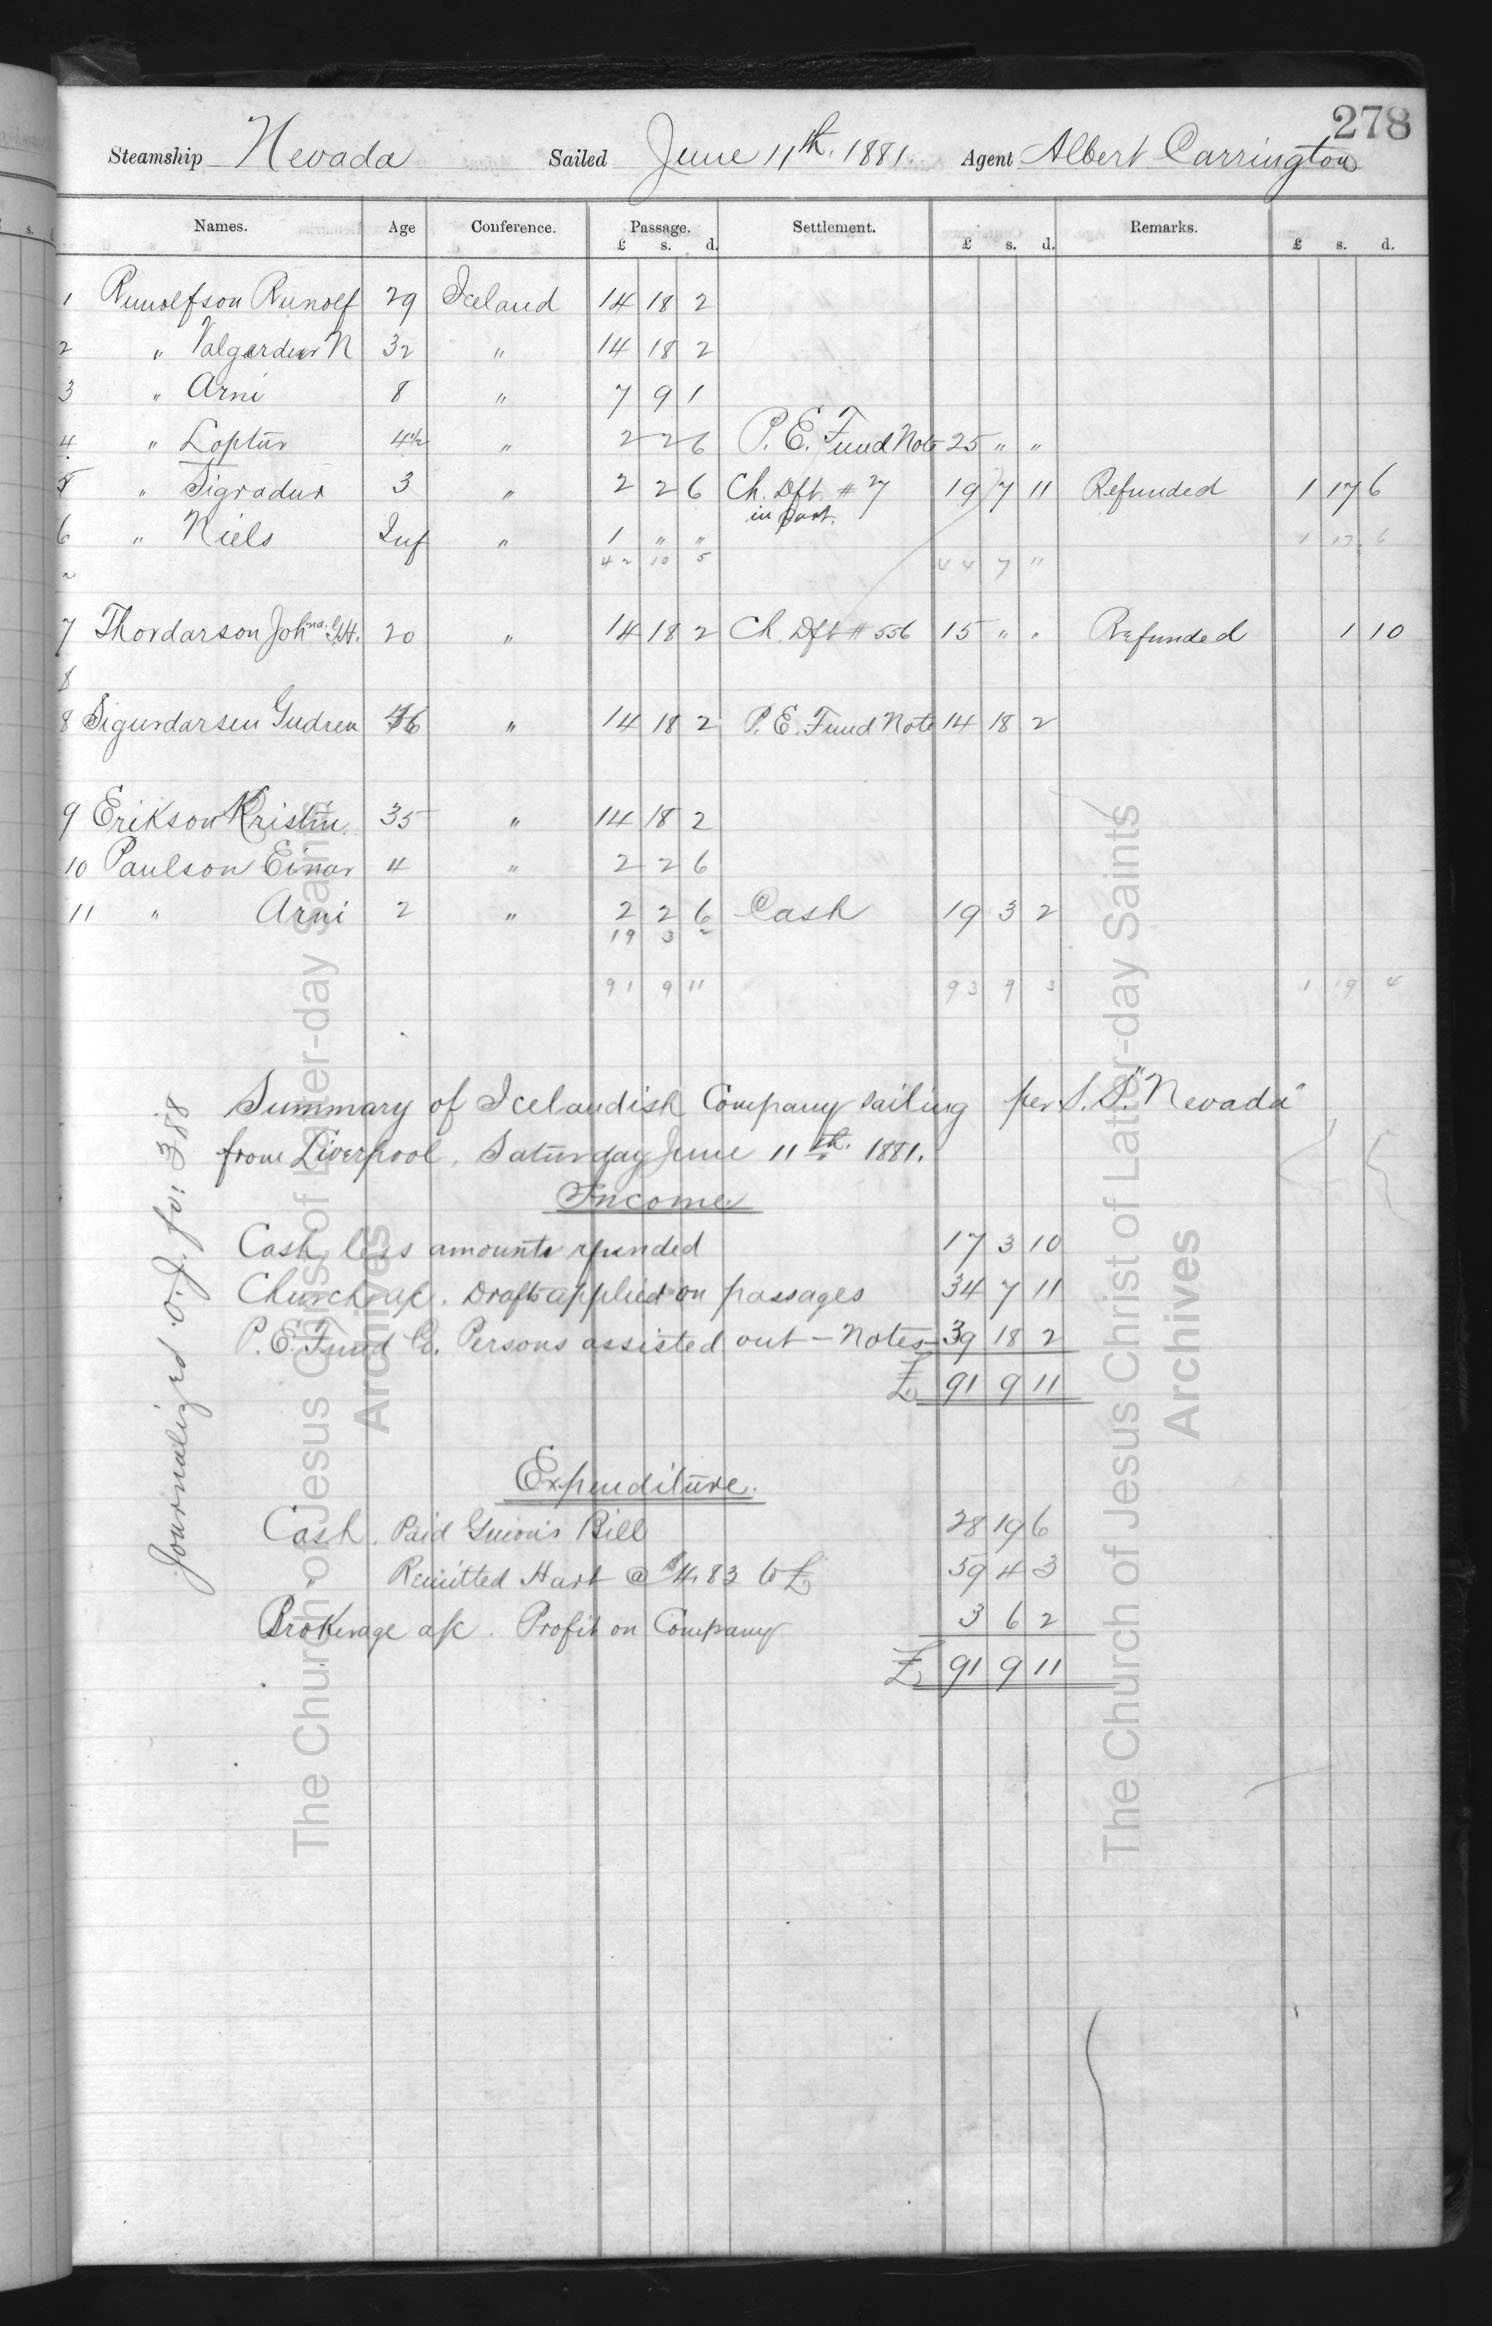 278
Steamship Nevada Sailed June 11th. 1881. Agent Albert Carrington
Names. Age Conference. Passage. Settlement. Remarks.
£ s. d. £ s. d. £ s. d.
1 Runolfson Runolf 29 Iceland 14 18 2
2 " Valgerdur N 32 " 14 18 2
3 " Arni 8 " 7 9 1
4 " Loptur 4½ " 2 2 6 P. E. Fund Note 25 " "
5 " Sigradur 3 " 2 2 6 Ch. Dft. # 27 19 7 11 Refunded 1 17 6
in part.
6 " Niels Inf " 1 " " 1 17 6
42 10 5 44 7 "
7 Thordarson Johna. G.H. 20 " 14 18 2 Ch. Dft # 556 15 " " Refunded 1 10
8
8 Sigurdarsen Gudren " 14 18 2 P. E. Fund Note 14 18 2
9 Erikson Kristin 35 " 14 18 2
10 Paulson Einar 4 " 2 2 6
11 " Arni 2 " 2 2 6 Cash 19 3 2
19 3 2
91 9 11 93 9 3 1 19 4
Summary of Icelandish Company sailing per S. S. "Nevada"
from Liverpool. Saturday June 11th. 1881.
Income
Cash, less amounts refunded 17 3 10
Church a/c. Drafts applied on passages 34 7 11
P. E. Fund Co. Persons assisted out - Notes 39 18 2
£ 91 9 11
Expenditure.
Cash. Paid Guion's Bill 28 19 6
" Remitted Hart @ $4.83 to £ 59 4 3
Brokerage a/c. Profit on Company 3 6 2
£ 91 9 11
Journalized O. J. fo: 388
The Church of Jesus Christ of Latter-day Saints
Archives
The Church of Jesus Christ of Latter-day Saints
Archives